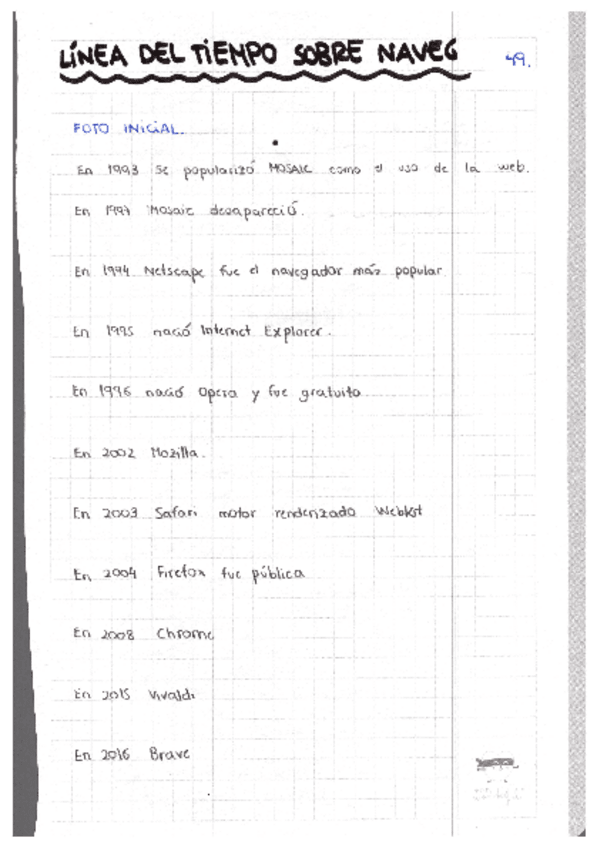 LÍNEA DEL TIEMPO SOBRE NAVEG
49.
FOTO INICIAL.
En 1993 se popularizó MOSAIC como el uso de la web.
En 1997 Mosaic desapareció.
En 1994 Netscape fue el navegador más popular
En 1995 nació Internet Explorer.
En 1996 nació Opera y fue gratuito
En 2002 Mozilla.
En 2003 Safari motor renderizado Webkit
En 2004 Firefox fue pública
En 2008 Chrome
En 2015 Vivaldi
En 2016 Brave